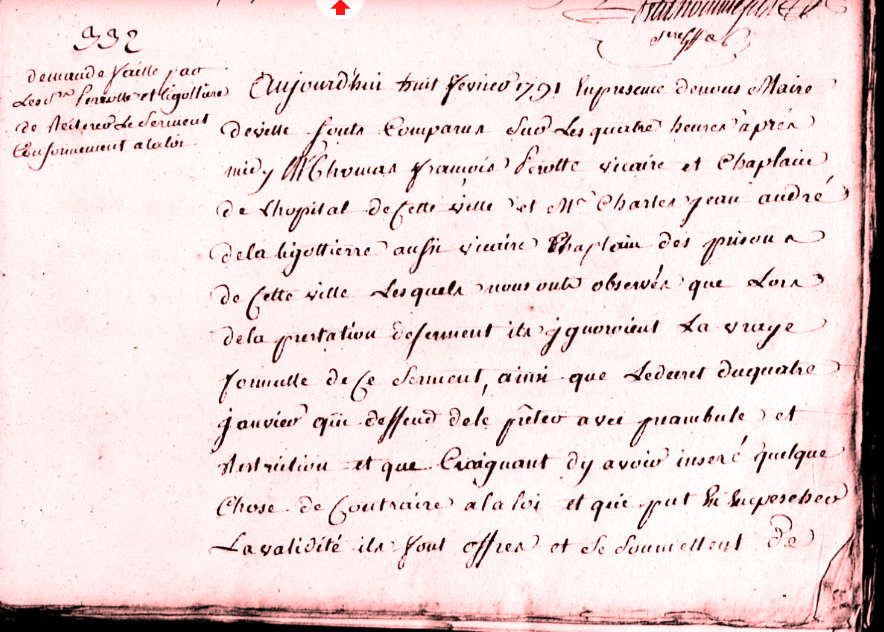 332
demande faitte par
Les srs Perrotte et ligottiere
de Reiterer Le Serment
Conformement a la loi
Aujourd'huy huit fevrier 1791 En presence de nous Maire
de ville sonts Comparus Sur Les quatre heures aprés
midy Mr Thomas françois Perotte vicaire et Chaplain
de Lhopital de Cette ville et Mr Charles jean andré
de la ligottierre aussi vicaire Chaplain des prisons
de Cette ville Lesquels nous onts observés que Lors
de la prestation de serment ils jgnoroient La vraye
formulle de Ce Serment, ainsi que Le decret du quatre
janvier qui deffend de le prêter avec preambule et
Restriction et que Craignant dy avoir inseré quelque
Chose de Contraire a la loi et qui put En Empescher
La validité ils font offres et Se Soumettent de